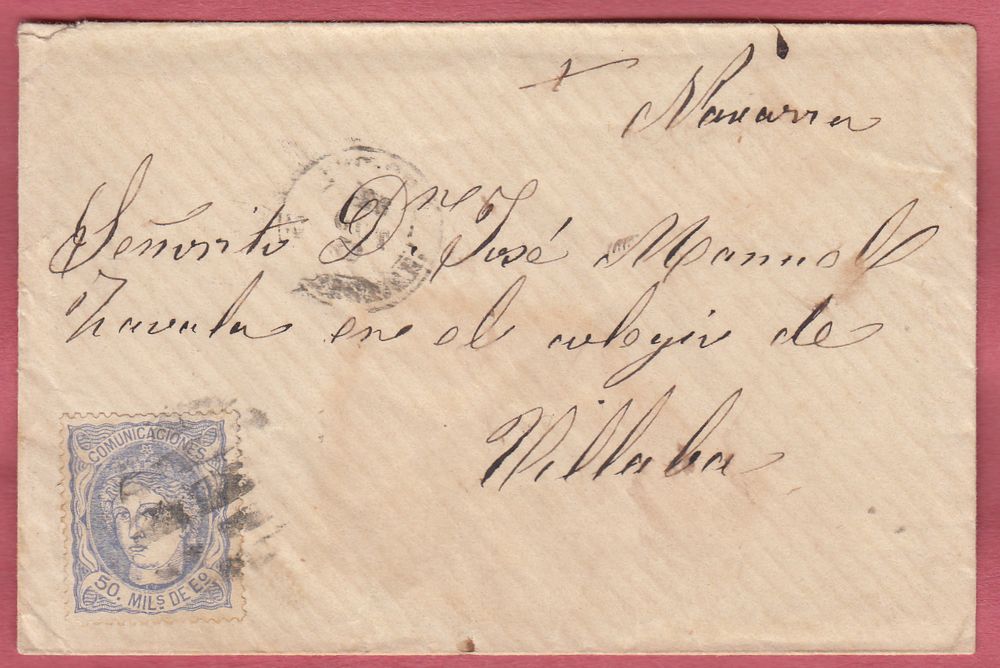 Navarra
Señorito Dn José Manuel
Zavala en el colegio de
Villaba
COMUNICACIONES
50. MILS DE Eº